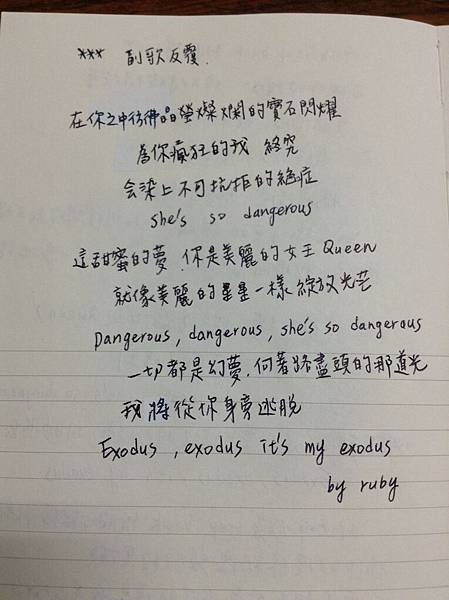 *** 副歌反覆.
在你之中彷彿晶螢燦爛的寶石閃耀
為你瘋狂的我 終究
会染上不可抗拒的絕症
she's so dangerous
這甜蜜的夢.你是美麗的女王Queen
就像美麗的星星一樣綻放光芒
Dangerous, dangerous, she's so dangerous
一切都是幻夢.向著路盡頭的那道光
我將從你身旁逃脫
Exodus, exodus it's my exodus
by ruby